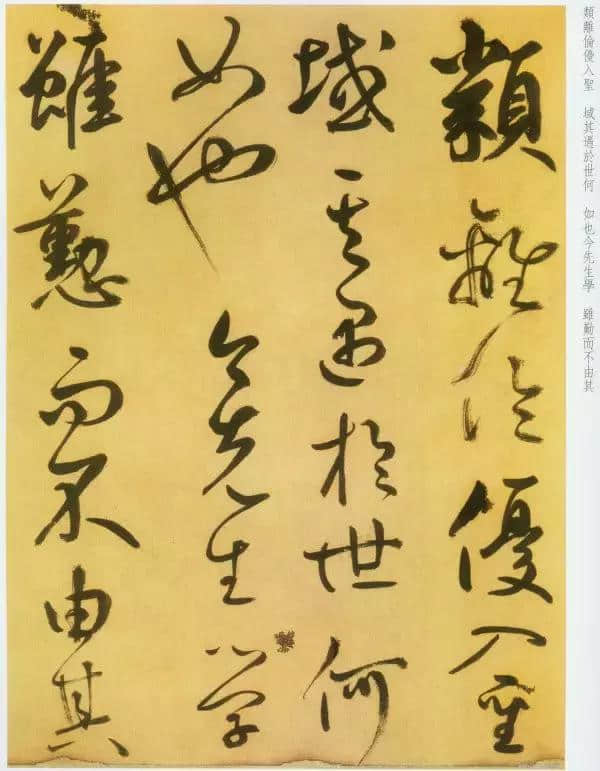 類離倫優入聖
域其遇於世何
如也今先生學
雖懃而不由其
類離倫優入聖　域其遇於世何　如也今先生學　雖勤而不由其